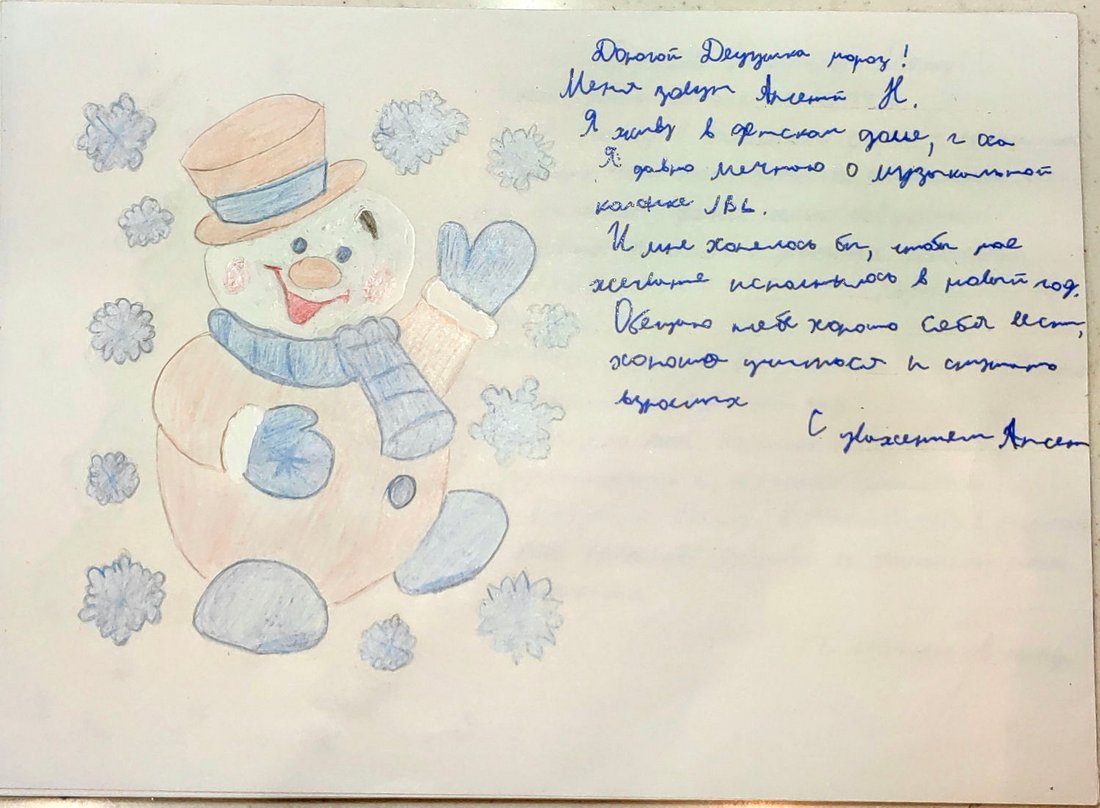 Дорогой Дедушка мороз!
Меня зовут Арсений Н.
Я живу в детском доме, г
Я давно мечтаю о музыкальной
колонке JBL.
И мне хотелось бы, чтобы мое
желание исполнилось в новый год.
Обещаю тебе хорошо себя вести,
хорошо учиться и слушать
взрослых
С уважением Арсен